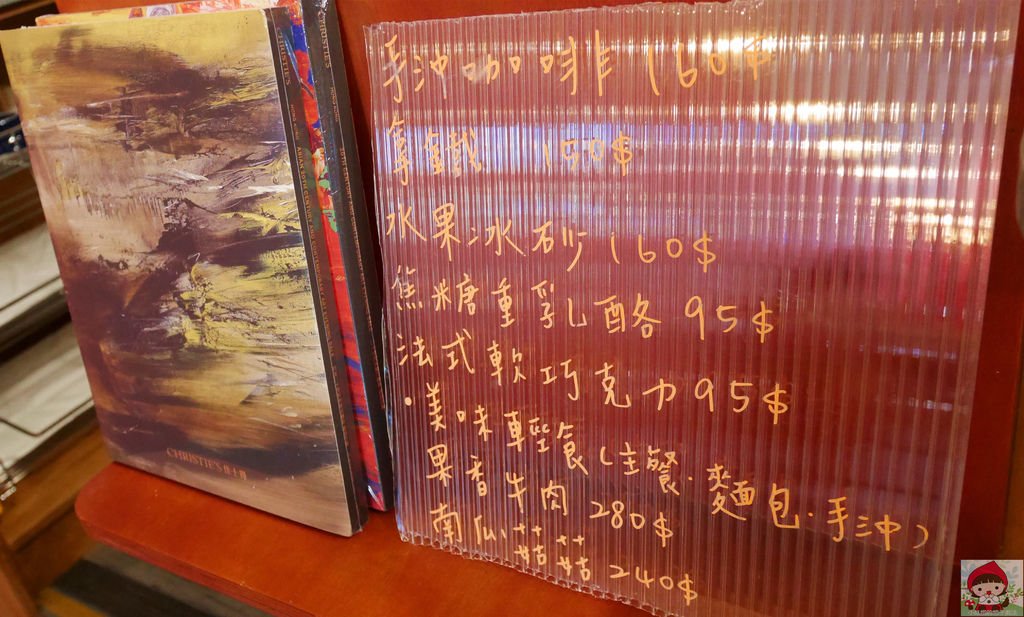 CHRISTIE'S
CHRISTIE'S
HONG KONG
ASIAN 20TH CENTURY AND CONTEMPORARY ART
CHRISTIE'S 佳士得
手沖咖啡 160$
拿鐵 150$
水果冰砂 160$
焦糖重乳酪 95$
法式軟巧克力 95$
·美味輕食(主餐.麵包.手沖)
果香牛肉 280$
南瓜菇菇 240$